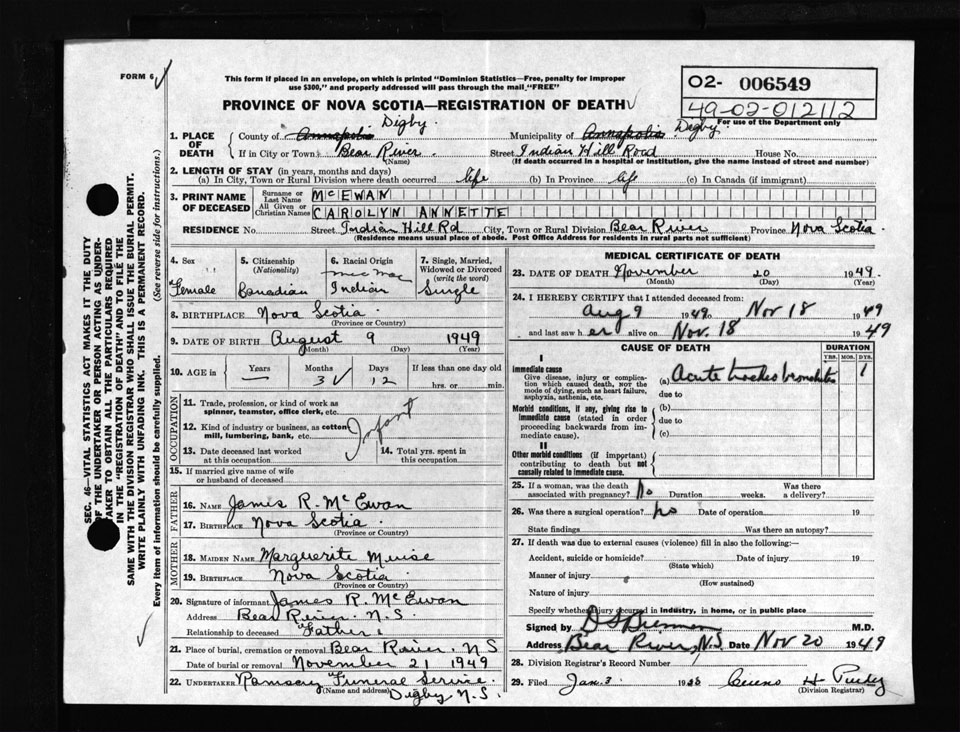 FORM 6
This form if placed in an envelope, on which is printed "Dominion Statistics—Free, penalty for improper
use $300," and properly addressed will pass through the mail "FREE"
O2- 006549
49-02-012112
For use of the Department only
PROVINCE OF NOVA SCOTIA—REGISTRATION OF DEATH
1. PLACE OF DEATH
County of Annapolis Digby. Municipality of Annapolis Digby.
If in City or Town Bear River. (Name) Street Indian Hill Road House No.
(If death occurred in a hospital or institution, give the name instead of street and number)
2. LENGTH OF STAY (in years, months and days)
(a) In City, Town or Rural Division where death occurred life (b) In Province life (c) In Canada (if immigrant)
3. PRINT NAME OF DECEASED
Surname or Last Name McEWAN
All Given or Christian Names CAROLYN ANNETTE
RESIDENCE No. Street Indian Hill Rd City, Town or Rural Division Bear River Province Nova Scotia
(Residence means usual place of abode. Post Office Address for residents in rural parts not sufficient)
4. Sex Female
5. Citizenship (Nationality) Canadian
6. Racial Origin Mic Mac Indian
7. Single, Married, Widowed or Divorced (write the word) Single
8. BIRTHPLACE Nova Scotia
(Province or Country)
9. DATE OF BIRTH August 9 1949
(Month) (Day) (Year)
10. AGE in Years — Months 3 Days 12 If less than one day old hrs. or min.
OCCUPATION
11. Trade, profession, or kind of work as spinner, teamster, office clerk, etc.
12. Kind of industry or business, as cotton mill, lumbering, bank, etc.
Infant
13. Date deceased last worked at this occupation
14. Total yrs. spent in this occupation
15. If married give name of wife or husband of deceased
FATHER
16. Name James R. McEwan
17. Birthplace Nova Scotia.
(Province or Country)
MOTHER
18. Maiden Name Marguerite Muise
19. Birthplace Nova Scotia
(Province or Country)
20. Signature of informant James R. McEwan
Address Bear River. N.S.
Relationship to deceased Father
21. Place of burial, cremation or removal Bear River. N S
Date of burial or removal November 21 1949
22. Undertaker Ramsay Funeral Service.
(Name and address) Digby N.S.
MEDICAL CERTIFICATE OF DEATH
23. DATE OF DEATH November 20 1949.
(Month) (Day) (Year)
24. I HEREBY CERTIFY that I attended deceased from:
Aug 9 1949 to Nov 18 1949
and last saw her alive on Nov. 18 1949
CAUSE OF DEATH
DURATION
YRS. MOS. DYS.
I
Immediate cause
Give disease, injury or complication which caused death, NOT the mode of dying, such as heart failure, asphyxia, asthenia, etc.
(a) Acute tracheo bronchitis 1
due to
Morbid conditions, if any, giving rise to immediate cause (stated in order proceeding backwards from immediate cause).
(b)
due to
(c)
II
Other morbid conditions (if important) contributing to death but not causally related to immediate cause.
25. If a woman, was the death associated with pregnancy? No Duration weeks. Was there a delivery?
26. Was there a surgical operation? No Date of operation 19
State findings Was there an autopsy?
27. If death was due to external causes (violence) fill in also the following:—
Accident, suicide or homicide? Date of injury 19
(State which)
Manner of injury
(How sustained)
Nature of injury
Specify whether injury occurred in industry, in home, or in public place
Signed by M.D.
Address Bear River, N.S. Date Nov 20 1949
28. Division Registrar's Record Number
29. Filed Jan. 3 19
(Division Registrar)
SEC. 46—VITAL STATISTICS ACT MAKES IT THE DUTY
OF THE UNDERTAKER OR PERSON ACTING AS UNDERTAKER
TO OBTAIN ALL THE PARTICULARS REQUIRED
IN THE "REGISTRATION OF DEATH" AND TO FILE THE
SAME WITH THE DIVISION REGISTRAR WHO SHALL ISSUE THE BURIAL PERMIT.
WRITE PLAINLY WITH UNFADING INK. THIS IS A PERMANENT RECORD.
Every item of information should be carefully supplied. (See reverse side for instructions.)